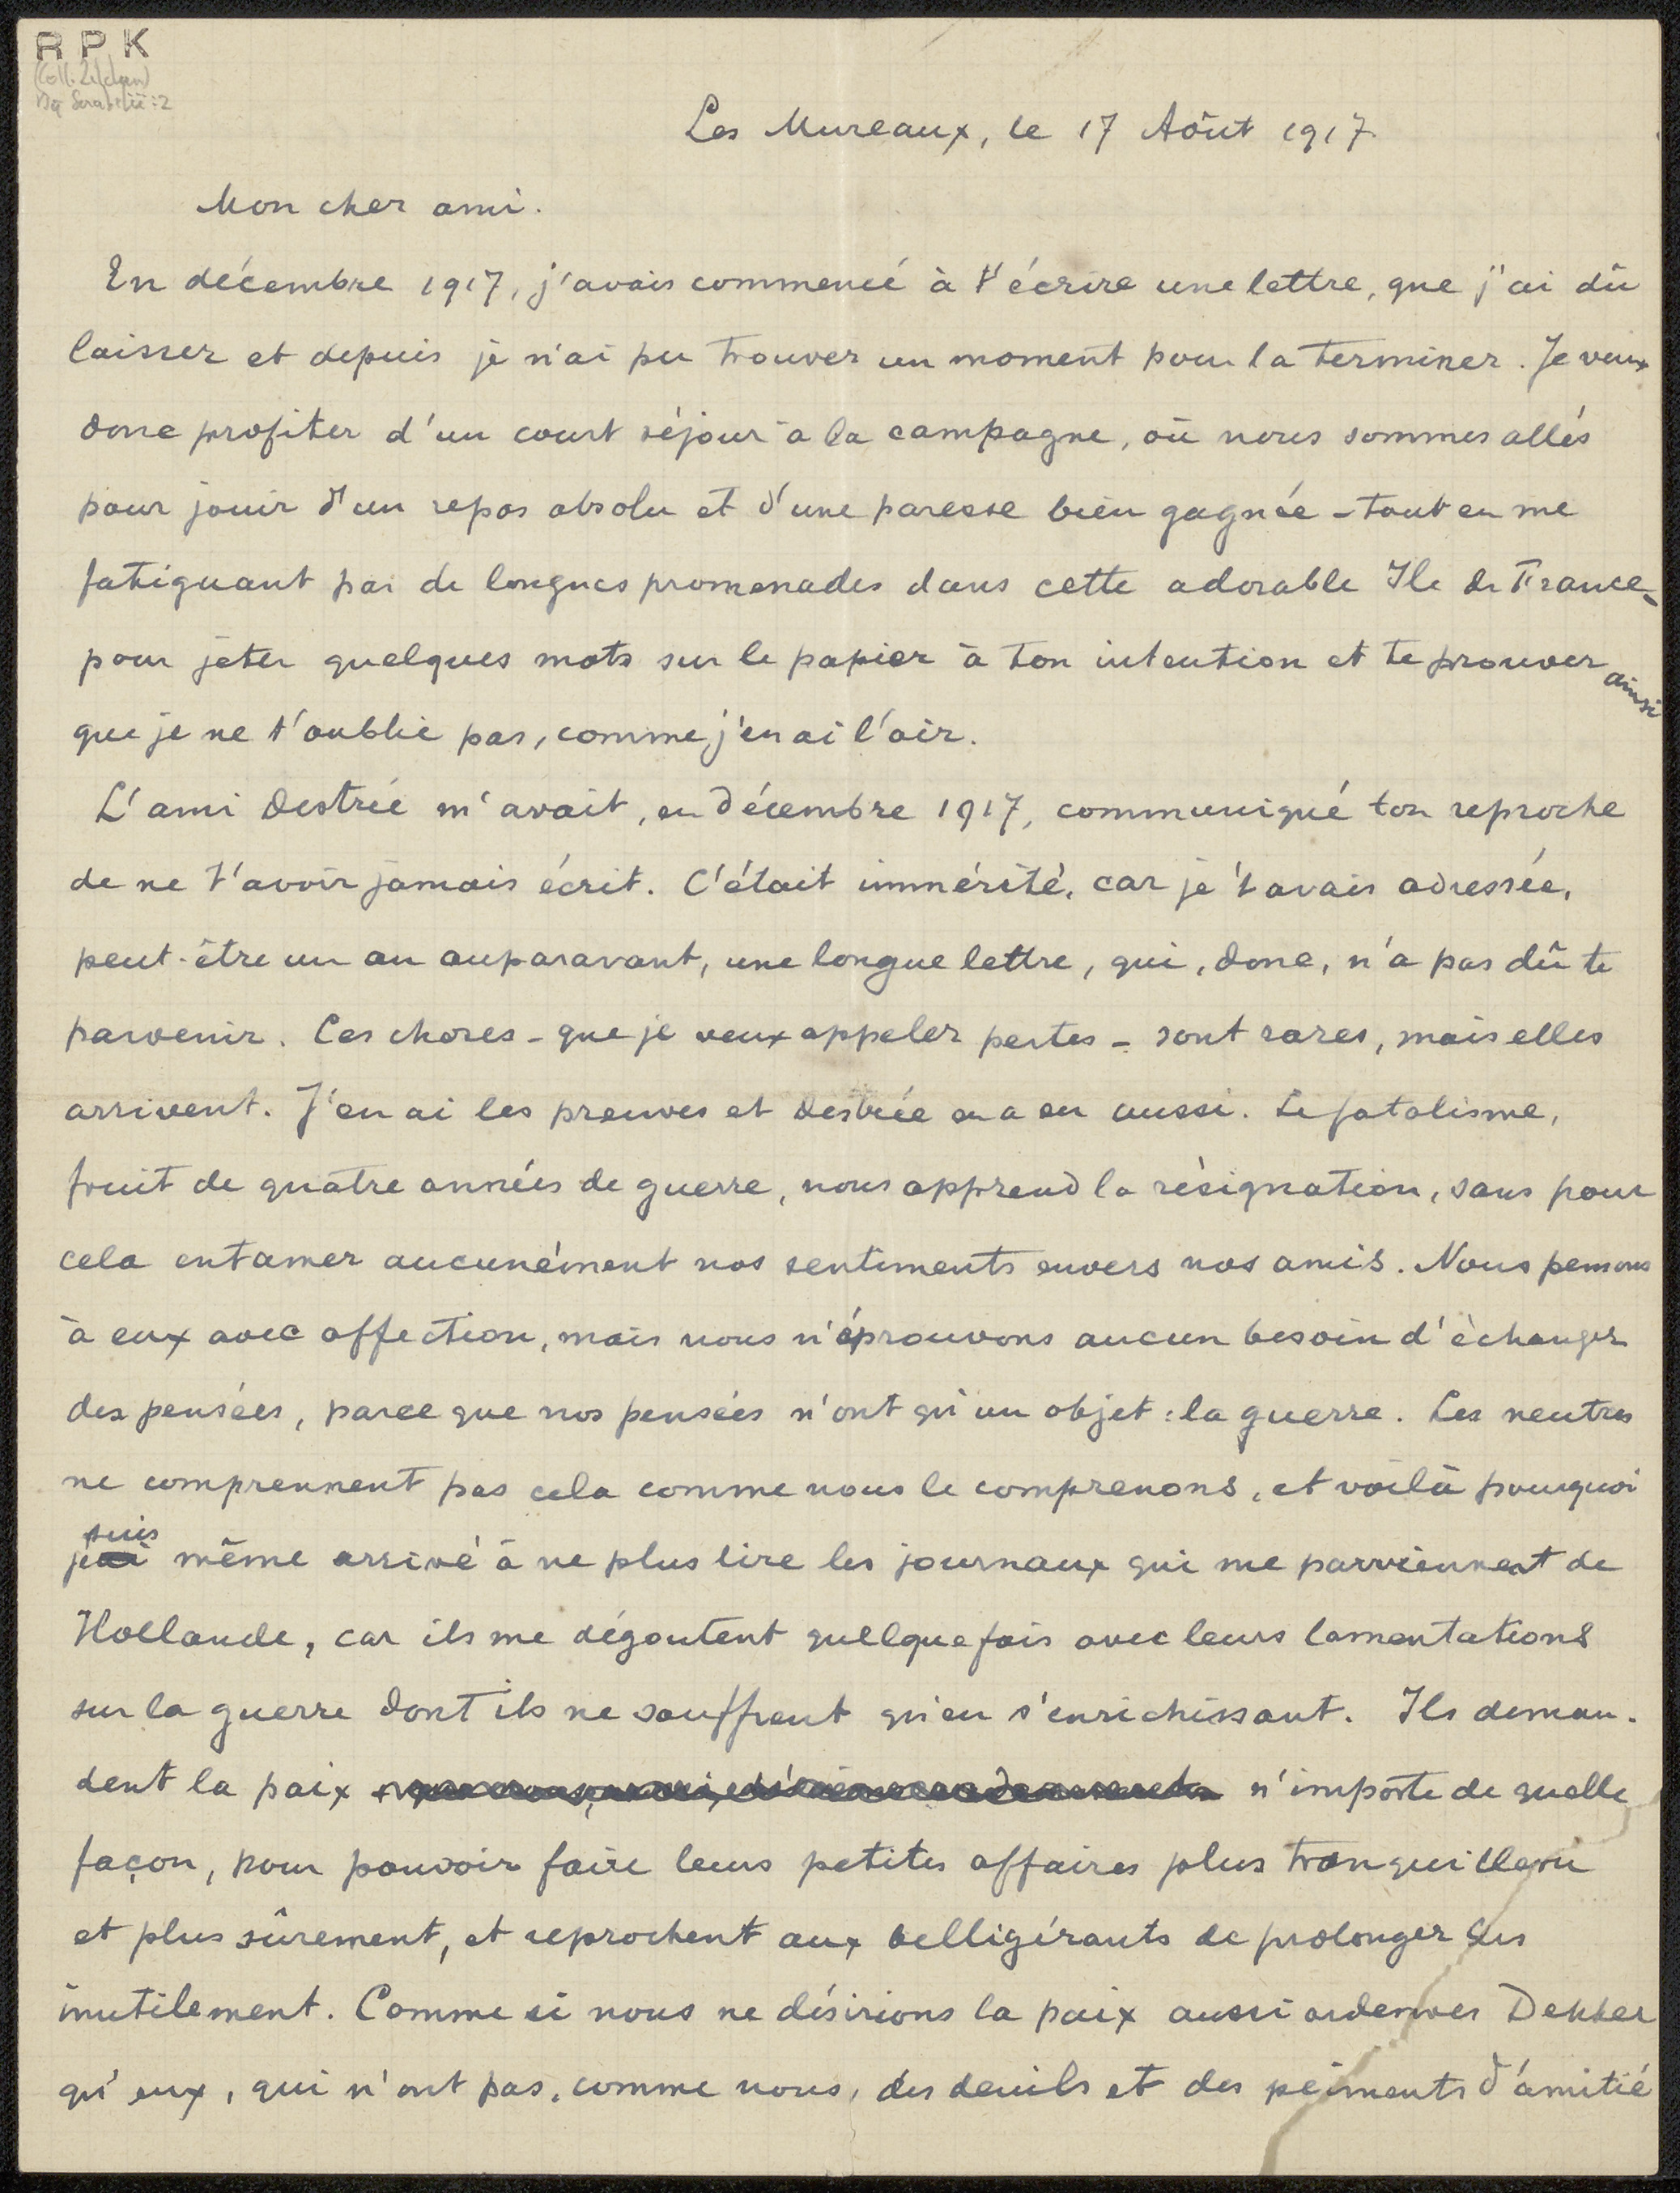 R P K
Les Mureaux, le 17 Août 1917.
Mon cher ami.
En décembre 1917, j'avais commencé à t'écrire une lettre, que j'ai dû
laisser et depuis je n'ai pu trouver un moment pour la terminer. Je veux
donc profiter d'un court séjour à la campagne, où nous sommes allés
pour jouir d'un repos absolu et d'une paresse bien gagnée - tout en me
fatiguant par de longues promenades dans cette adorable Ile de France -
pour jeter quelques mots sur le papier à ton intention et te prouver ainsi
que je ne t'oublie pas, comme j'en ai l'air.
L'ami Destrée m'avait, en décembre 1917, communiqué ton reproche
de ne t'avoir jamais écrit. C'était immérité, car je t'avais adressée,
peut-être un an auparavant, une longue lettre, qui, donc, n'a pas dû te
parvenir. Ces choses - que je veux appeler pertes - sont rares, mais elles
arrivent. J'en ai les preuves et Destrée en a eu aussi. Le fatalisme,
fruit de quatre années de guerre, nous apprend la résignation, sans pour
cela entamer aucunément nos sentiments envers nos amis. Nous pensons
à eux avec affection, mais nous n'éprouvons aucun besoin d'échanger
des pensées, parce que nos pensées n'ont qu'un objet : la guerre. Les neutres
ne comprennent pas cela comme nous le comprenons, et voilà pourquoi
suis
je même arrivé à ne plus lire les journaux qui me parviennent de
Hollande, car ils me dégoutent quelquefois avec leurs lamentations
sur la guerre dont ils ne souffrent qu'en s'enrichissant. Ils deman-
dent la paix n'importe de quelle
façon, pour pouvoir faire leurs petites affaires plus tranquillem
et plus sûrement, et reprochent aux belligérants de prolonger
inutilement. Comme si nous ne désirions la paix aussi Dekker
qu'eux, qui n'ont pas, comme nous, des deuils et des d'amitié